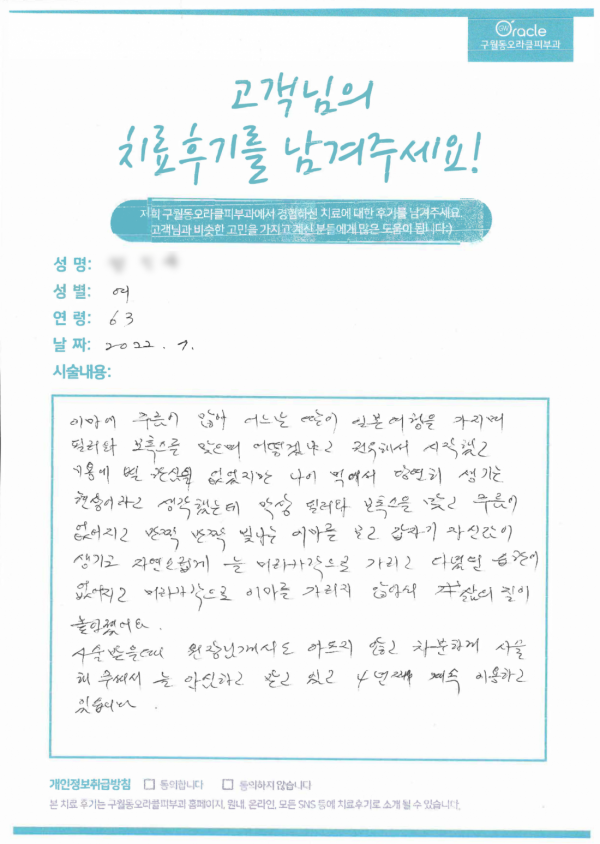 Oracle
구월동오라클피부과
고객님의
치료후기를 남겨주세요!
저희 구월동오라클피부과에서 경험하신 치료에 대한 후기를 남겨주세요.
고객님과 비슷한 고민을 가지고 계신 분들에게 많은 도움이 됩니다:)
성 명:
성 별: 여
연 령: 63
날 짜: 2022. 7.
시술내용:
이마에 주름이 많아 어느날 딸이 일본여행을 가자며
필러와 보톡스를 맞으면 어떻겠냐고 권유해서 시작했고
미용에 별 관심을 없었지만 나이 먹어서 당연히 생기는
현상이라고 생각했는데 막상 필러와 보톡스을 맞고 주름이
없어지고 반짝 반짝 빛나는 이마를 보고 갑자기 자신감이
생기고 자연스럽게 늘 머리카락으로 가리고 다녔던 습관이
없어지고 머리카락으로 이마를 가리지 않아도 삶의 질이
높아졌어요.
시술받을때 원장님께서도 아프지 않고 차분하게 시술
해 주셔서 늘 안심하고 받고 있고 4년째 계속 이용하고
있습니다.
개인정보취급방침 동의합니다 동의하지 않습니다
본 치료 후기는 구월동오라클피부과 홈페이지, 원내, 온라인, 모든 SNS 등에 치료후기로 소개 될 수 있습니다.